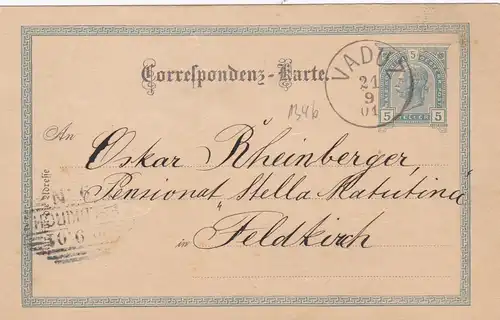 Correspondenz-Karte.
VADUZ
21
9
01
5 5
HELLER
134b
An
Oskar Rheinberger,
Pensionat "Stella Matutina"
in Feldkirch